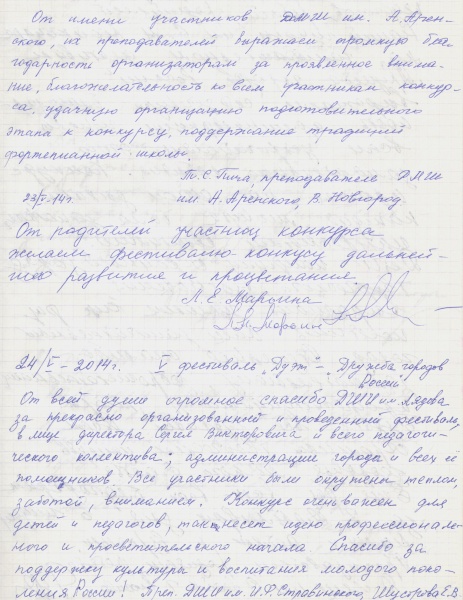 От имени участников ДМШ им. А. Арен-
ского, их преподавателей выражаем огромную бла-
годарность организаторам за проявленное внима-
ние, благожелательность ко всем участникам конкур-
са, удачную организацию подготовительного
этапа к конкурсу, поддержание традиций
фортепианной школы.
преподаватель ДМШ
23/V-14г. им А. Аренского, В. Новгород
От родителей участниц конкурса
желаем фестивалю-конкусу дальней-
шего развития и процветания
Л. Е. Марьина
24/V-2014г. V фестиваль "Дуэт" - "Дружба городов
России"
От всей души огромное спасибо ДШИ им. Лядова
за прекрасно организованный и проведенный фестиваль,
в лице директора Сергея Викторовича и всего педагоги-
ческого коллектива; администрации города и всех её
помощников. Все участники были окружены теплом,
заботой, вниманием. Конкурс очень важен для
детей и педагогов, так несет идею профессионало-
ного и просветительского начала. Спасибо за
поддержку культуры и воспитания молодого поко-
ления России! Преп. ДШИ им. И.Ф. Стравинского, Шустрова Е.В.